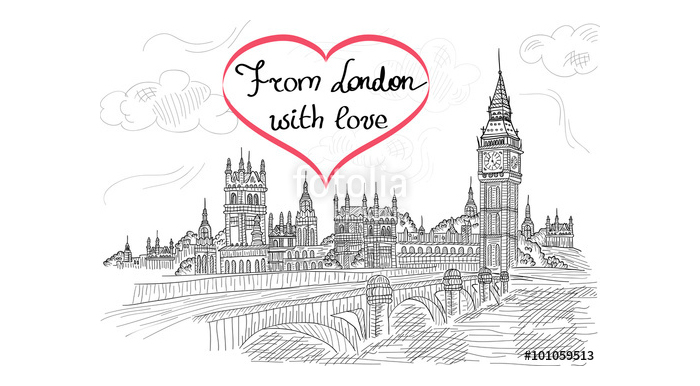 From London
with love
fotolia
#101059513